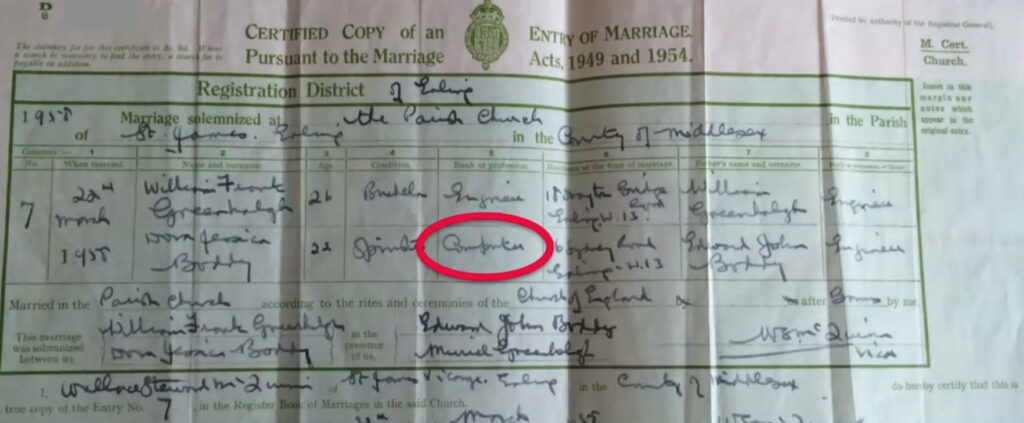 D
CERTIFIED COPY OF AN ENTRY OF MARRIAGE.
Pursuant to the Marriage Acts, 1949 and 1954.
The statutory fee for this certificate is 3s. 9d. Where
a search is necessary to find the entry, a search fee is
payable in addition.
(Printed by authority of the Registrar General).
M. Cert.
Church.
Insert in this
margin any
notes which
appear in the
original entry.
Registration District of Ealing
1958 Marriage solemnized at the Parish Church in the Parish
of St. James. Ealing in the County of Middlesex
Columns:— 1 2 3 4 5 6 7 8
No. When married. Name and surname. Age Condition. Rank or profession. Residence at the time of marriage. Father's name and surname.
7 22nd March 1958
William Frank Greenhalgh 26 Bachelor Engineer Ealing W.13. William Greenhalgh Engineer
Dora Jessica Boddy 22 Spinster Computer 6 Sydney Road Ealing - W.13 Edward John Boddy Engineer
Married in the Parish Church according to the rites and ceremonies of the Church of England or after Banns by me,
This marriage was solemnized between us,
William Frank Greenhalgh
Dora Jessica Boddy
in the presence of us,
Edward John Boddy
Muriel Greenhalgh
W S McQuinn
Vicar
I, Wallace Steward McQuinn of St James Vicarage. Ealing in the County of Middlesex do hereby certify that this is
true copy of the Entry No. 7, in the Register Book of Marriages in the said Church.
March 58